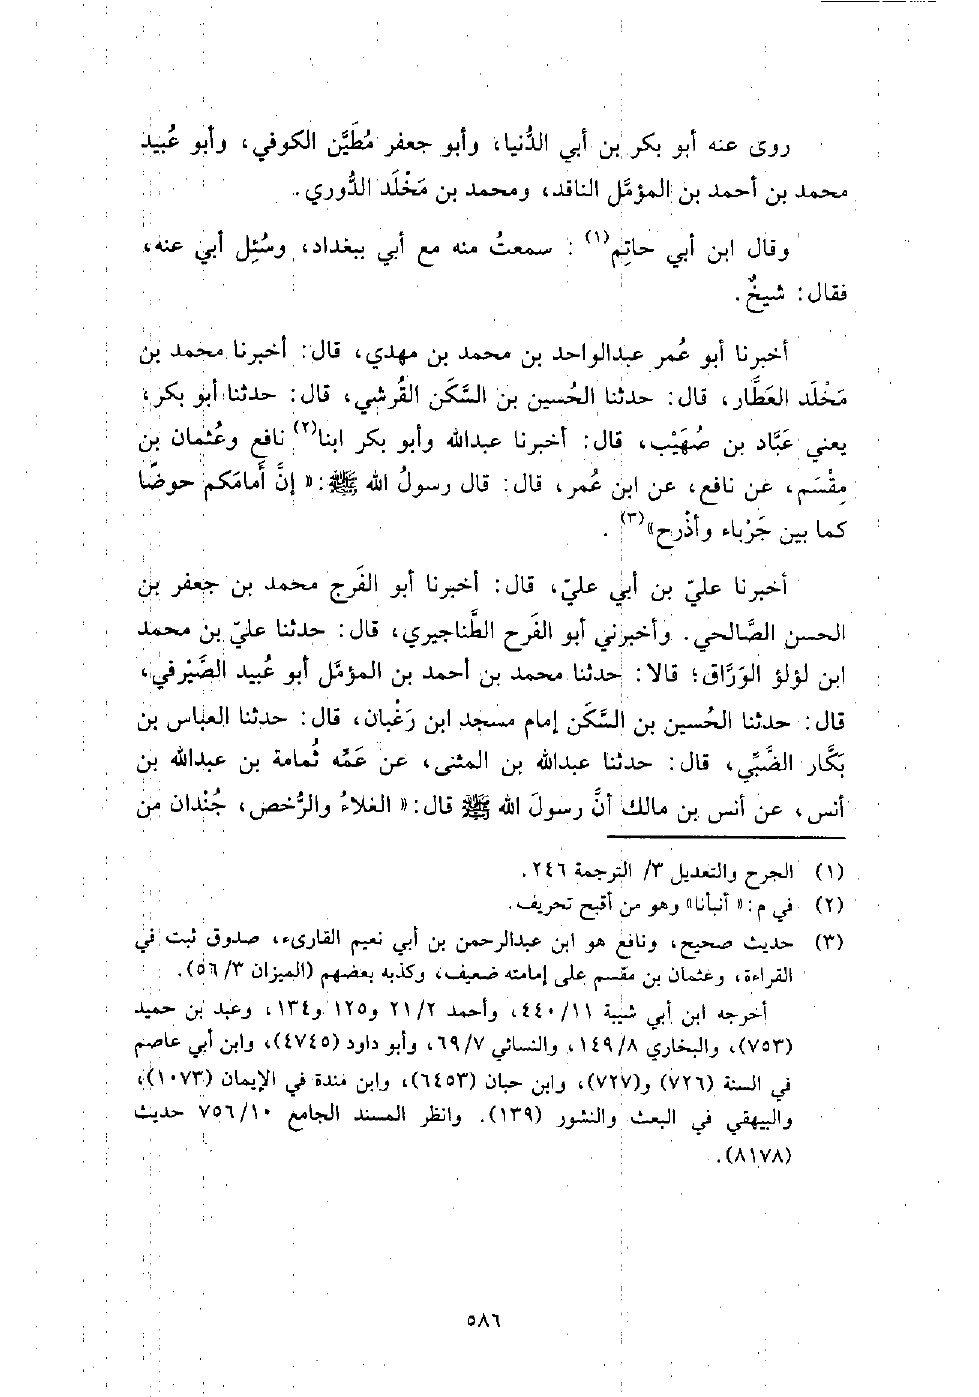 روى عنه أبو بكر بن أبي الدُّنيا، وأبو جعفر مُطَيَّن الكوفي، وأبو عُبيد
محمد بن أحمد بن المؤمَّل الناقد، ومحمد بن مَخْلَد الدُّوري.
وقال ابن أبي حاتِم(١): سمعتُ منه مع أبي ببغداد، وسُئِل أبي عنه،
فقال: شيخٌ.
أخبرنا أبو عُمر عبدالواحد بن محمد بن مهدي، قال: أخبرنا محمد بن
مَخْلَد العَطَّار، قال: حدثنا الحُسين بن السَّكَن القُرشي، قال: حدثنا أبو بكر،
يعني عَبَّاد بن صُهَيْب، قال: أخبرنا عبدالله وأبو بكر ابنا(٢) نافع وعُثمان بن
مِقْسَم، عن نافع، عن ابن عُمر، قال: قال رسولُ الله ﷺ: «إنَّ أمامَكم حوضًا
كما بين جَرْباء وأذْرح»(٣).
أخبرنا عليّ بن أبي عليّ، قال: أخبرنا أبو الفَرج محمد بن جعفر بن
الحسن الصَّالحي. وأخبرني أبو الفَرح الطَّناجيري، قال: حدثنا عليّ بن محمد
ابن لؤلؤ الوَرَّاق؛ قالا: حدثنا محمد بن أحمد بن المؤمَّل أبو عُبيد الصَّيْرفي،
قال: حدثنا الحُسين بن السَّكَن إمام مسجد ابن رَغْبان، قال: حدثنا العباس بن
بَكَّار الضَّبِّي، قال: حدثنا عبدالله بن المثنى، عن عَمِّه ثُمامة بن عبدالله بن
أنس، عن أنس بن مالك أنَّ رسولَ الله ﷺ قال: «الغلاءُ والرُّخص، جُنْدان من
(١) الجرح والتعديل ٣/ الترجمة ٢٤٦.
(٢) في م: «أنبأنا» وهو من أقبح تحريف.
(٣) حديث صحيح، ونافع هو ابن عبدالرحمن بن أبي نعيم القارىء، صدوق ثبت في
القراءة، وعثمان بن مقسم على إمامته ضعيف، وكذبه بعضهم (الميزان ٣/ ٥٦).
أخرجه ابن أبي شيبة ١١/ ٤٤٠، وأحمد ٢/ ٢١ و١٢٥ و١٣٤، وعبد بن حميد
(٧٥٣)، والبخاري ٨/ ١٤٩، والنسائي ٧/ ٦٩، وأبو داود (٤٧٤٥)، وابن أبي عاصم
في السنة (٧٢٦) و(٧٢٧)، وابن حبان (٦٤٥٣)، وابن مندة في الإيمان (١٠٧٣)،
والبيهقي في البعث والنشور (١٣٩). وانظر المسند الجامع ١٠/ ٧٥٦ حديث
(٨١٧٨).
٥٨٦